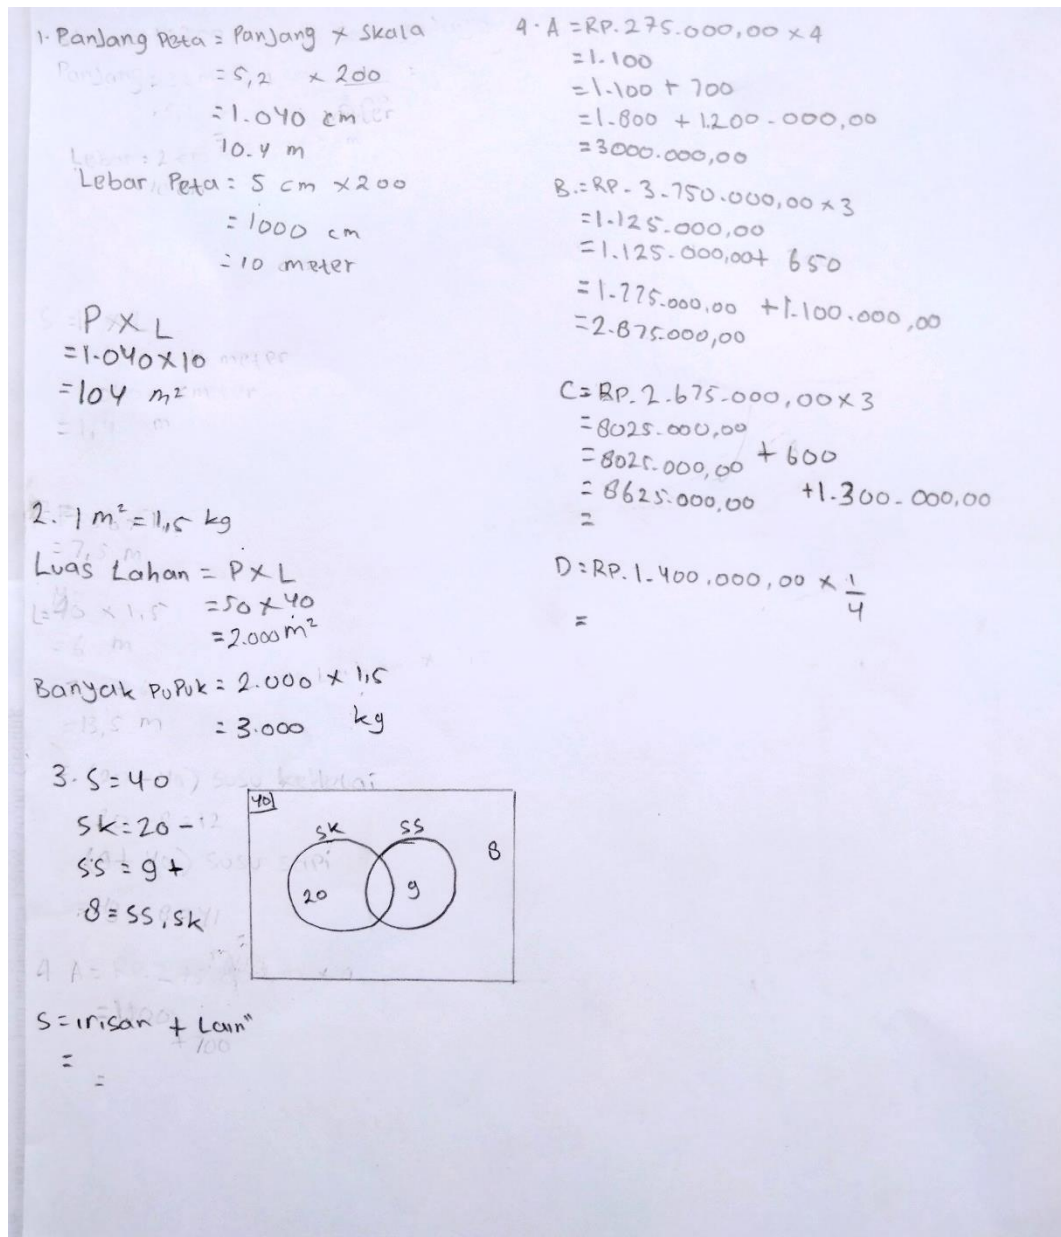 1. Panjang Peta = Panjang x Skala
= 5,2 x 200
= 1.040 cm
10.4 m
Lebar Peta = 5 cm x 200
= 1000 cm
= 10 meter
P x L
= 1.040 x 10
= 104 m²
2. 1 m² = 1,5 kg
Luas Lahan = P x L
= 50 x 40
= 2.000 m²
Banyak Pupuk = 2.000 x 1,5
= 3.000 kg
3. S = 40
SK = 20 -
SS = 9 +
8 = SS, SK
40
SK SS
20 9 8
S = irisan + Lain"
=
=
4. A = RP. 275.000,00 x 4
= 1.100
= 1.100 + 700
= 1.800 + 1.200.000,00
= 3000.000,00
B. = RP. 3.750.000,00 x 3
= 1.125.000,00
= 1.125.000,00 + 650
= 1.775.000,00 + 1.100.000,00
= 2.875.000,00
C = RP. 2.675.000,00 x 3
= 8025.000,00
= 8025.000,00 + 600
= 8625.000,00 + 1.300.000,00
=
D = RP. 1.400.000,00 x 1/4
=